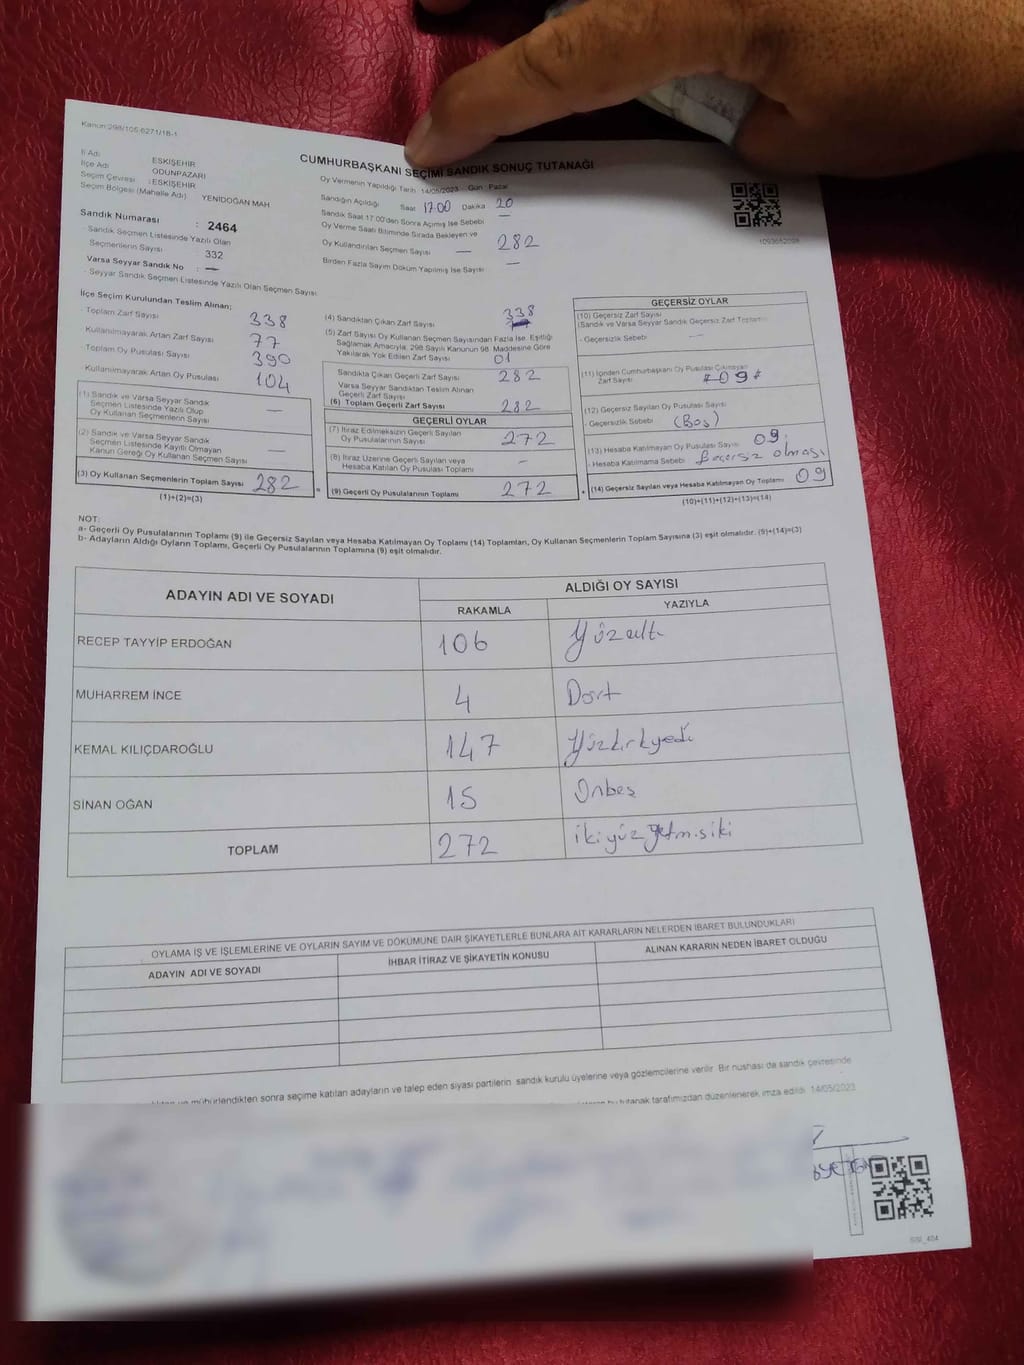 Kanun:298/105.6271/18-1
CUMHURBAŞKANI SEÇİMİ SANDIK SONUÇ TUTANAĞI
İl Adı ESKİŞEHİR
İlçe Adı ODUNPAZARI
Seçim Çevresi : ESKİŞEHİR
Seçim Bölgesi (Mahalle Adı) YENİDOĞAN MAH
Sandık Numarası : 2464
Sandık Seçmen Listesinde Yazılı Olan
Seçmenlerin Sayısı : 332
Varsa Seyyar Sandık No : —
- Seyyar Sandık Seçmen Listesinde Yazılı Olan Seçmen Sayısı
Oy Vermenin Yapıldığı Tarih : 14/05/2023 Gün : Pazar
Sandığın Açıldığı Saat 17:00 Dakika 20
Sandık Saat 17:00'den Sonra Açımış İse Sebebi —
Oy Verme Saati Bitiminde Sırada Bekleyen ve
Oy Kullandırılan Seçmen Sayısı — 282
Birden Fazla Sayım Döküm Yapılmış İse Sayısı —
1093652098
İlçe Seçim Kurulundan Teslim Alınan;
Toplam Zarf Sayısı 338
Kullanılmayarak Artan Zarf Sayısı 77
Toplam Oy Pusulası Sayısı 390
Kullanılmayarak Artan Oy Pusulası 104
(1) Sandık ve Varsa Seyyar Sandık
Seçmen Listesinde Yazılı Olup
Oy Kullanan Seçmenlerin Sayısı —
(2) Sandık ve Varsa Seyyar Sandık
Seçmen Listesinde Kayıtlı Olmayan
Kanun Gereği Oy Kullanan Seçmen Sayısı —
(3) Oy Kullanan Seçmenlerin Toplam Sayısı 282
(1)+(2)=(3)
(4) Sandıktan Çıkan Zarf Sayısı 338
(5) Zarf Sayısı Oy Kullanan Seçmen Sayısından Fazla İse, Eşitliği
Sağlamak Amacıyla, 298 Sayılı Kanunun 98. Maddesine Göre
Yakılarak Yok Edilen Zarf Sayısı 01
Sandıkta Çıkan Geçerli Zarf Sayısı 282
Varsa Seyyar Sandıktan Teslim Alınan
Geçerli Zarf Sayısı
(6) Toplam Geçerli Zarf Sayısı 282
GEÇERLİ OYLAR
(7) İtiraz Edilmeksizin Geçerli Sayılan
Oy Pusulalarının Sayısı 272
(8) İtiraz Üzerine Geçerli Sayılan veya
Hesaba Katılan Oy Pusulası Toplamı -
= (9) Geçerli Oy Pusulalarının Toplamı 272
GEÇERSİZ OYLAR
(10) Geçersiz Zarf Sayısı
(Sandık ve Varsa Seyyar Sandık Geçersiz Zarf Toplamı)
- Geçersizlik Sebebi —
(11) İçinden Cumhurbaşkanı Oy Pusulası Çıkmayan
Zarf Sayısı #09#
(12) Geçersiz Sayılan Oy Pusulası Sayısı
- Geçersizlik Sebebi (Boş)
(13) Hesaba Katılmayan Oy Pusulası Sayısı 09
- Hesaba Katılmama Sebebi Geçersiz olması
+ (14) Geçersiz Sayılan veya Hesaba Katılmayan Oy Toplamı 09
(10)+(11)+(12)+(13)=(14)
NOT:
a- Geçerli Oy Pusulalarının Toplamı (9) ile Geçersiz Sayılan veya Hesaba Katılmayan Oy Toplamı (14) Toplamları, Oy Kullanan Seçmenlerin Toplam Sayısına (3) eşit olmalıdır. (9)+(14)=(3)
b- Adayların Aldığı Oyların Toplamı, Geçerli Oy Pusulalarının Toplamına (9) eşit olmalıdır.
ADAYIN ADI VE SOYADI ALDIĞI OY SAYISI
RAKAMLA YAZIYLA
RECEP TAYYİP ERDOĞAN 106 Yüzaltı
MUHARREM İNCE 4 Dört
KEMAL KILIÇDAROĞLU 147 Yüzkırkyedi
SİNAN OĞAN 15 Onbeş
TOPLAM 272 ikiyüzyetmişiki
OYLAMA İŞ VE İŞLEMLERİNE VE OYLARIN SAYIM VE DÖKÜMÜNE DAİR ŞİKAYETLERLE BUNLARA AİT KARARLARIN NELERDEN İBARET BULUNDUKLARI
ADAYIN ADI VE SOYADI İHBAR İTİRAZ VE ŞİKAYETİN KONUSU ALINAN KARARIN NEDEN İBARET OLDUĞU
mühürlendikten sonra seçime katılan adayların ve talep eden siyasi partilerin sandık kurulu üyelerine veya gözlemcilerine verilir. Bir nushası da sandık çevresinde
bu tutanak tarafımızdan düzenlenerek imza edildi. 14/05/2023